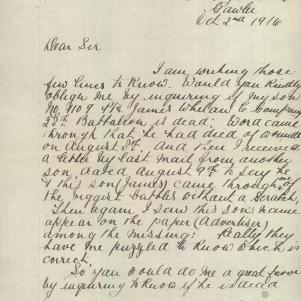 Gawler
Oct 2nd 1916
Dear Sir
I am writing those
few lines to know. Would you kindly
oblige me by inquiring if my son
No 1109 Pte James Whelan C Company
32th Battalion is dead. Word came
through that he had died of wounds
on August 3rd. And then I received
a letter by last mail from another
son, dated August 9th to say he
& this son (James) came through one of
the biggest battles without a scratch.
Then again I saw this son's name
appear on the paper (Advertiser)
among the missing. Really they
have me puzzled to know which is
correct.
So you would do me a great favour
by inquiring to know if he is dead